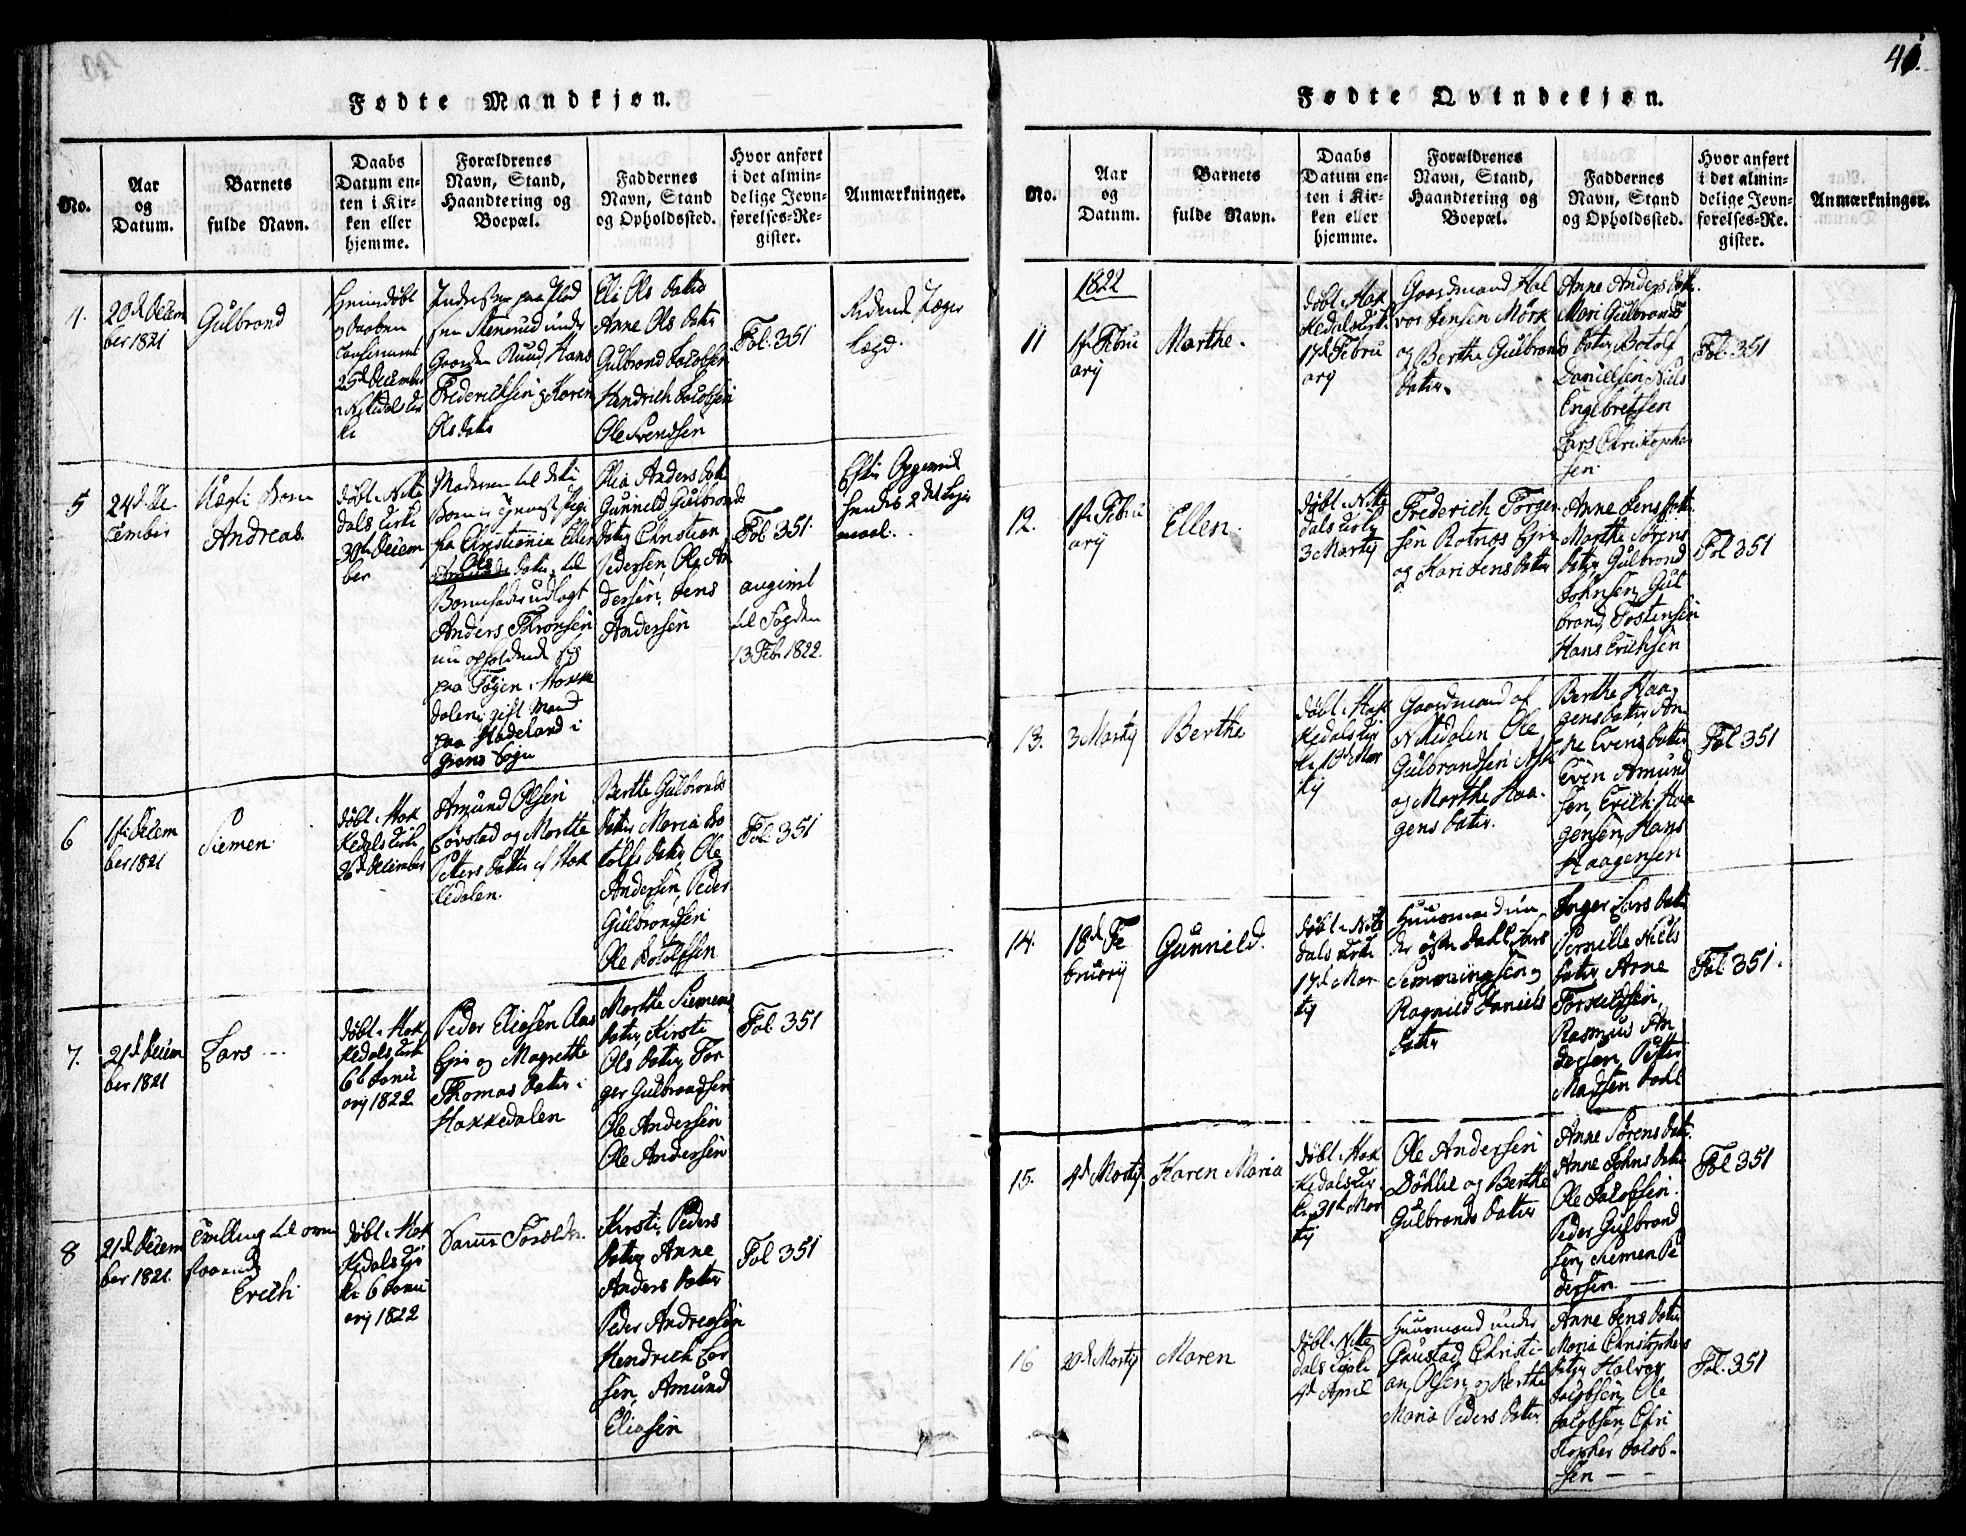 Fødte Mandkjøn.
No.
Aar
og
Datum.
Barnets
fulde Navn.
Daabs
Datum en-
ten i Kir-
ken eller
hjemme.
Forældrenes
Navn, Stand,
Haandtering og
Boepæl.
Faddernes
Navn, Stand
og Opholdssted.
Hvor anført
i det almin-
delige Jevn-
førelses-Re-
gister.
Anmærkninger.
4.
20d Decem
ber 1821
Gulbrand
Hiemdøbt
25d December
i Nitedals Kir
ke
Gaarden Ruud, Hans
Frederichsen og Karen
Ols datter
Eli Ols datter
Anne Ols datter
Gulbrand Jacobsen
Hendrich Jacobsen
Ole Svendsen
Fol. 351
5
24d De
cember
Uægte Barn
Andreas.
døbt i Nite
dals Kirke
30te Decem
ber
Moderen til dette
fra Christiania Ellen
Ols datter, til
Barnefader udlagt
Anders Thronsen
nu opholdende sig
paa Hadeland i
Grans Sogn
Olia Anders datter
Gunneld Gulbrands
datter Christian
Pedersen, Ole An
dersen, Jens
Andersen
Fol 351
angivet
til Fogden
13 Feb. 1822.
6
1ste Decem
ber 1821
Siemen.
døbt i Hak
kedals Kirke
26d December
Amund Olsen
Løvstad og Marthe
Petters datter af Hak
kedalen.
Berthe Gulbrands
datter Maria Bo
tolfs datter, Ole
Andersen, Peder
Gulbrandsen
Ole Botolfsen
Fol. 351
7.
21d Decem
ber 1821
Lars
døbt i Hak
kedals Kirke
6te Janu
arij 1822
Peder Eliasen Aas
Eje og Magrethe
Thomas datter i
Hakkedalen
Marthe Siemens
datter, Kirsti
Ols datter, Tor
ger Gulbrandsen
Ole Andersen
Ole Andersen
Fol 351
8
21d Decem
ber 1821.
Tvilling til oven
staaende
Erich
døbt i Hak
kedals Kir
ke 6 Janu
arij 1822
Samme Forældre.
Kirsti Peders
datter Anne
Anders datter
Peder Andreasen
Hendrich Lar
sen, Amund
Eliasen
Fol 351
41.
Fødte Qvindekjøn.
No.
Aar
og
Datum.
Barnets
fulde Navn.
Daabs
Datum en-
ten i Kir-
ken eller
hjemme.
Forældrenes
Navn, Stand,
Haandtering og
Boepæl.
Faddernes
Navn, Stand
og Opholdssted.
Hvor anført
i det almin-
delige Jevn-
førelses-Re-
gister.
Anmærkninger.
11
1822
1ste Febru
arij
Marthe.
døbt i Hak
kedals Kirke
17d Febru
arij
Gaardmand Hal
vor Jensen Mørk
og Berthe Gulbrands
datter.
Anne Anders datter.
Mari Gulbrands
datter, Botolf
Danielsen, Niels
Engebretsen
Lars Christopher
sen.
Fol. 351
12.
1ste Febru
arij
Ellen.
døbt i Nite
dals Kirke
3 Martij
Frederich Torger
sen Rotnes Eje
og Kari Jens datter
Anne Jens datter
Marthe Sørens
datter, Gulbrand
Johnsen, Gul
brand Tostensen
Hans Erichsen
Fol 351
13.
3 Martij
Berthe
døbt i Hak
kedals Kir
ke
Mar
tij
Gaardmand af
Nitedalen Ole
Gulbrandsen
og Marthe Haa-
gens datter.
Berthe Haa
gens datter An
ne Evens datter
Even Amund
sen, Erich Haa
gensen, Hans
Haagensen
Fol 351
14.
18d Fe
bruarij
Gunnield.
døbt i Nite
dals Kirke
17d Mar
tij
Huusmand un
der østre Dahl Lars
Simmingsen og
Ragnild Daniels
datter
Inger Lars datter
Pernille Niels
datter Arne
Torkildsen,
Rasmus An
dersen, Petter
Madsen Dahl
Fol. 351.
15.
4d Martij
Karen Maria
døbt i Hak
kedals Kir
ke 31te Mar
tij
Ole Andersen
Døhlie og Berthe
Gulbrands datter
Anne Sørens datter.
Anne Johns datter
Ole Jacobsen.
Peder Gulbrand
sen, Siemen Pe
dersen
Fol 351
16
20d Martij
Maren
døbt i Nite
dals Kirke
4d April
Huusmand under
Gaustad Christi-
an Olsen, og Berthe
Maria Peders datter
Anne Jens datter
Maria Christophers
datter, Halvor
Jacobsen, Ole
Jacobsen, Chri
stopher Jacob-
sen
Fol. 351